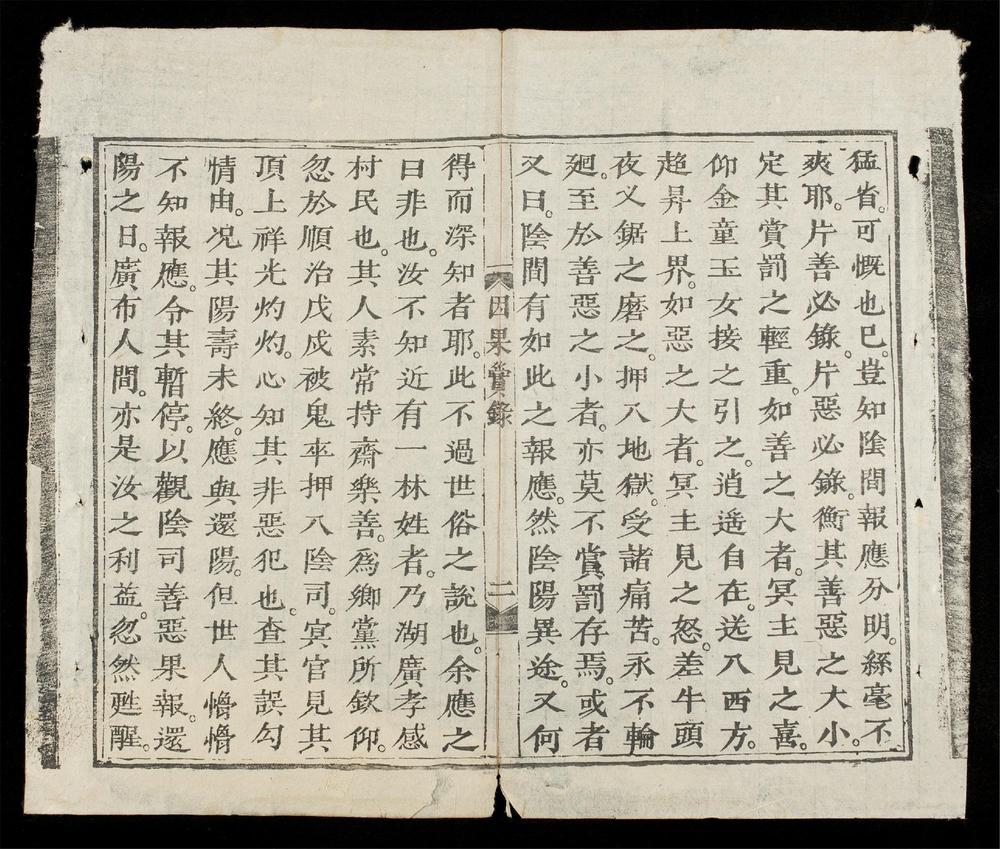 猛省。可慨也已。豈知陰間報應分明。絲毫不
爽耶。片善必錄。片惡必錄。衡其善惡之大小。
定其賞罰之輕重。如善之大者。冥主見之喜。
仰金童玉女接之引之。逍遥自在。送入西方。
趂昇上界。如惡之大者。冥主見之怒。差牛頭
夜叉鋸之磨之。押入地獄。受諸痛苦。永不輪
廻。至於善惡之小者。亦莫不賞罰存焉。或者
又曰。陰間有如此之報應。然陰陽異途。又何
因果實錄 二
得而深知者耶。此不過世俗之說也。余應之
曰非也。汝不知近有一林姓者。乃湖廣孝感
村民也。其人素常持齋樂善。為鄉黨所欽仰。
忽於順治戊戌被鬼卒押入陰司。冥官見其
頂上祥光灼灼。心知其非惡犯也。查其誤勾
情由。况其陽壽未終。應與還陽。但世人懵懵
不知報應。令其暫停。以觀陰司善惡果報。還
陽之日。廣布人間。亦是汝之利益。忽然甦醒。